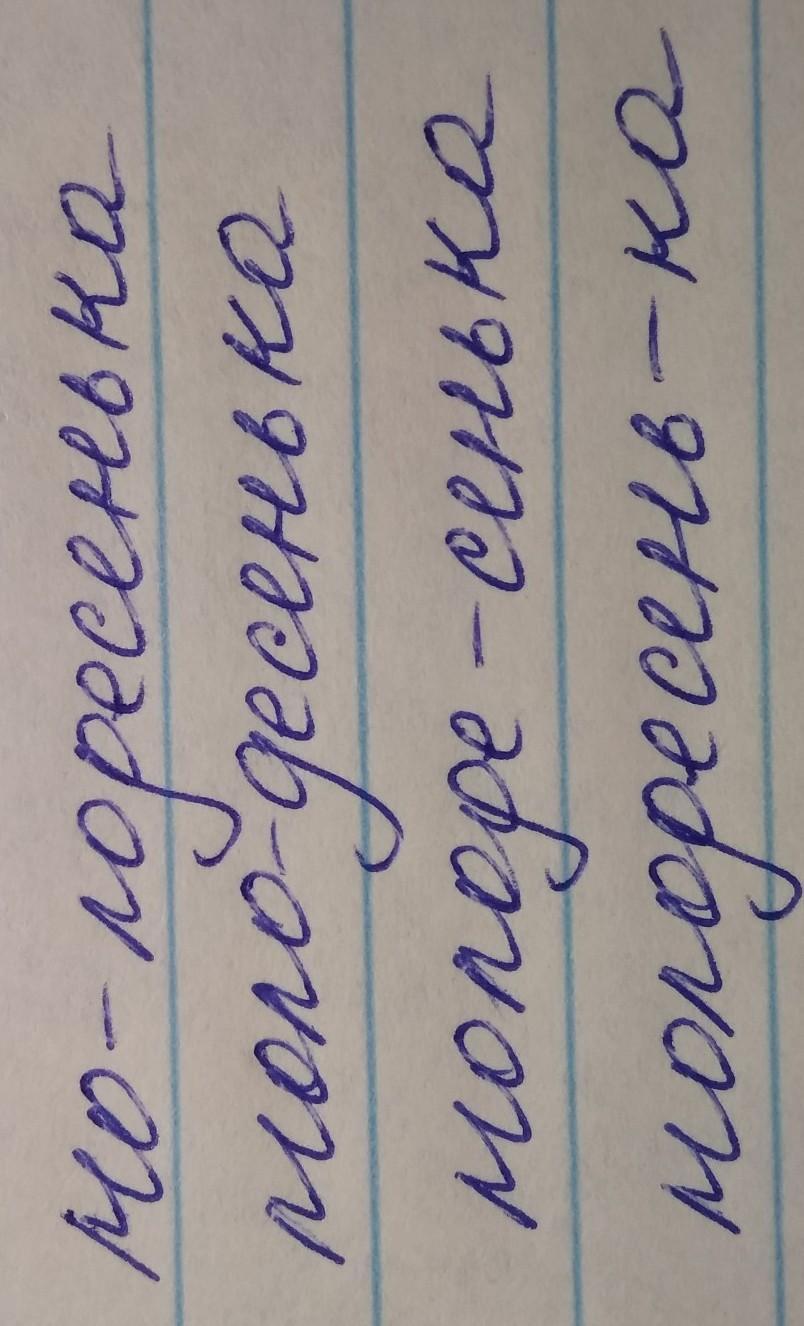 мо-лодесенька
моло-десенька
молоде-сенька
молодесень-ка